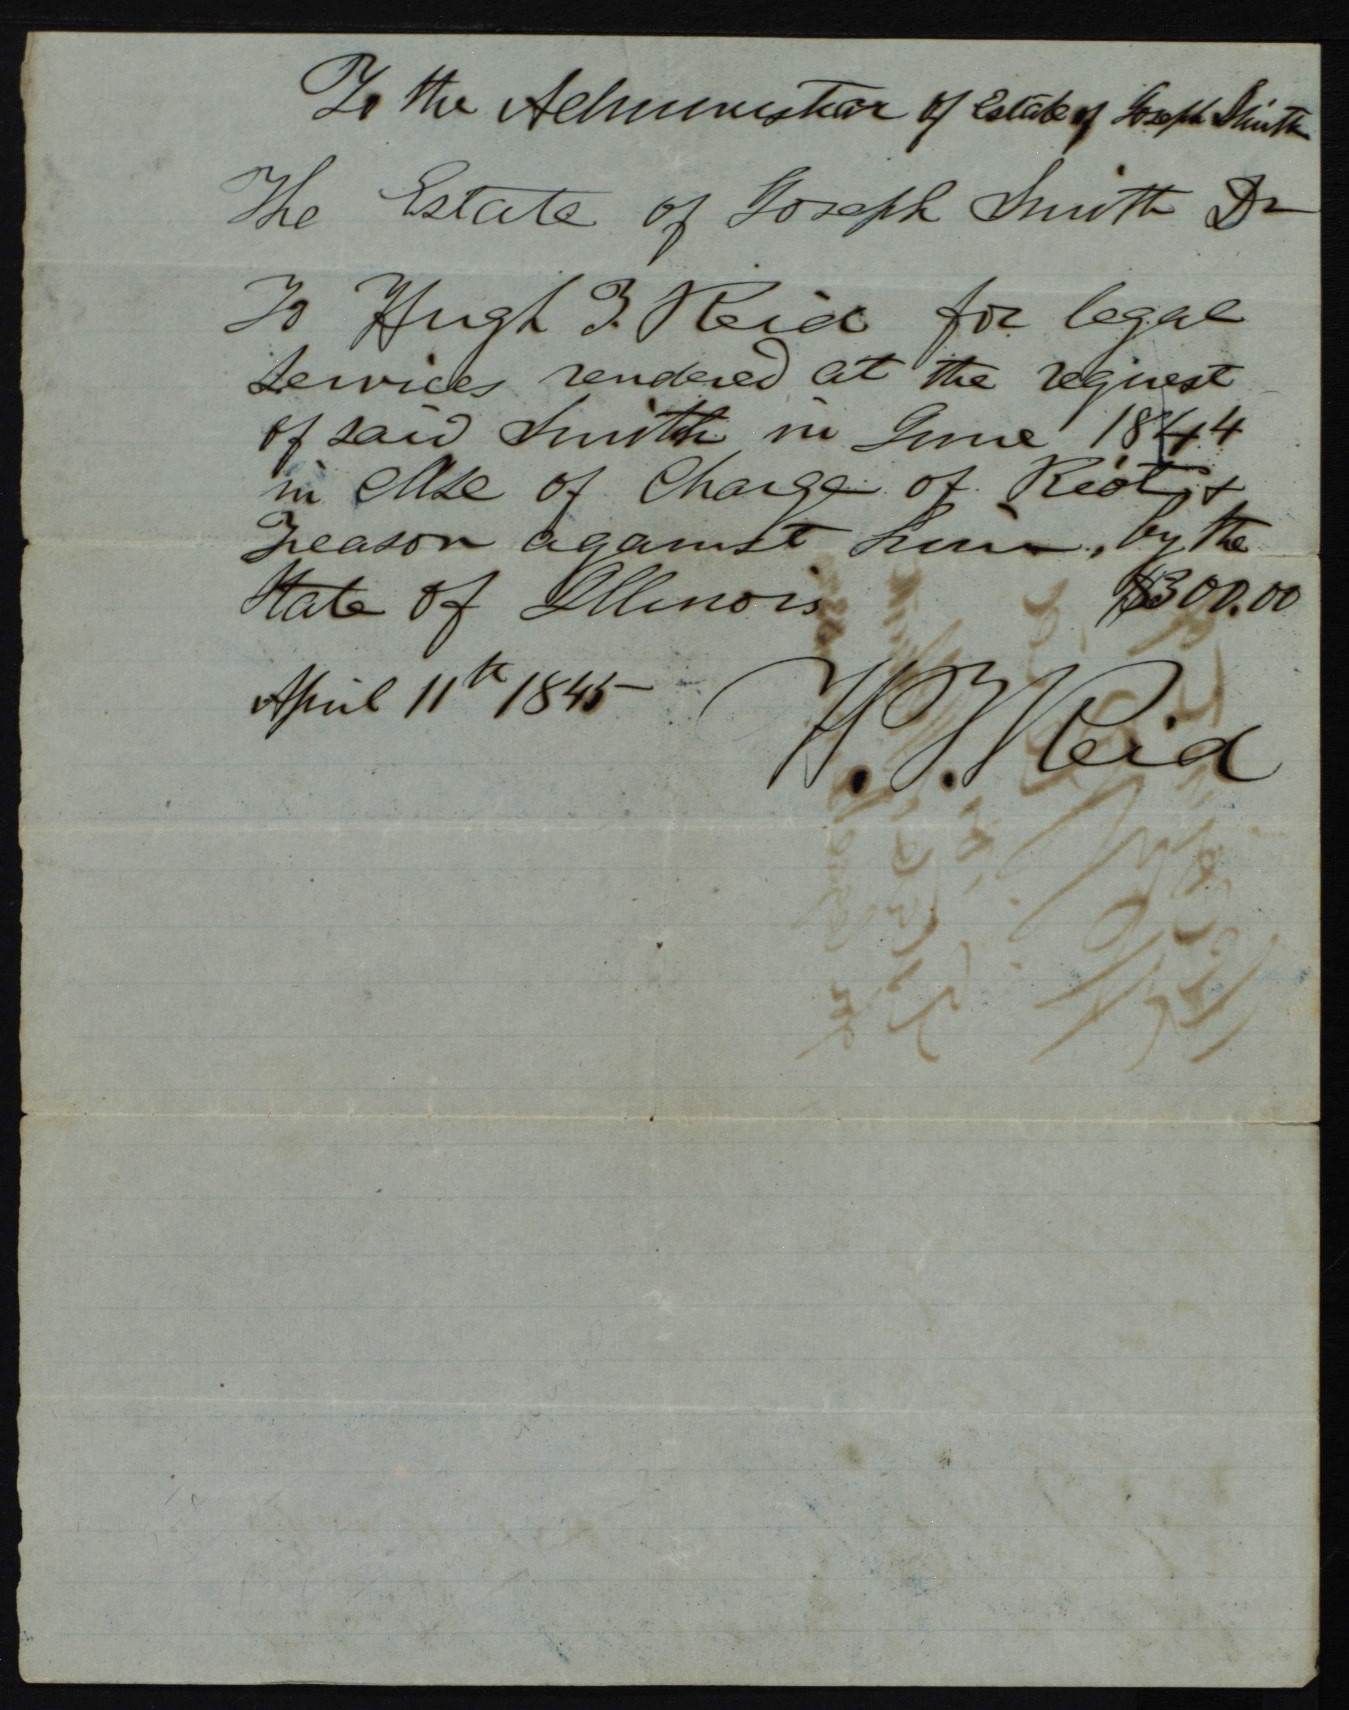 To the Administrar of Estate of Joseph Smith
The Estate of Joseph Smith Dr
To Hugh T. Reid for legal
services rendered at the request
of said Smith in June 1844
in case of Charge of Riot &
Treason against him, by the
State of Illinois $300.00
April 11th 1845
H. T. Reid